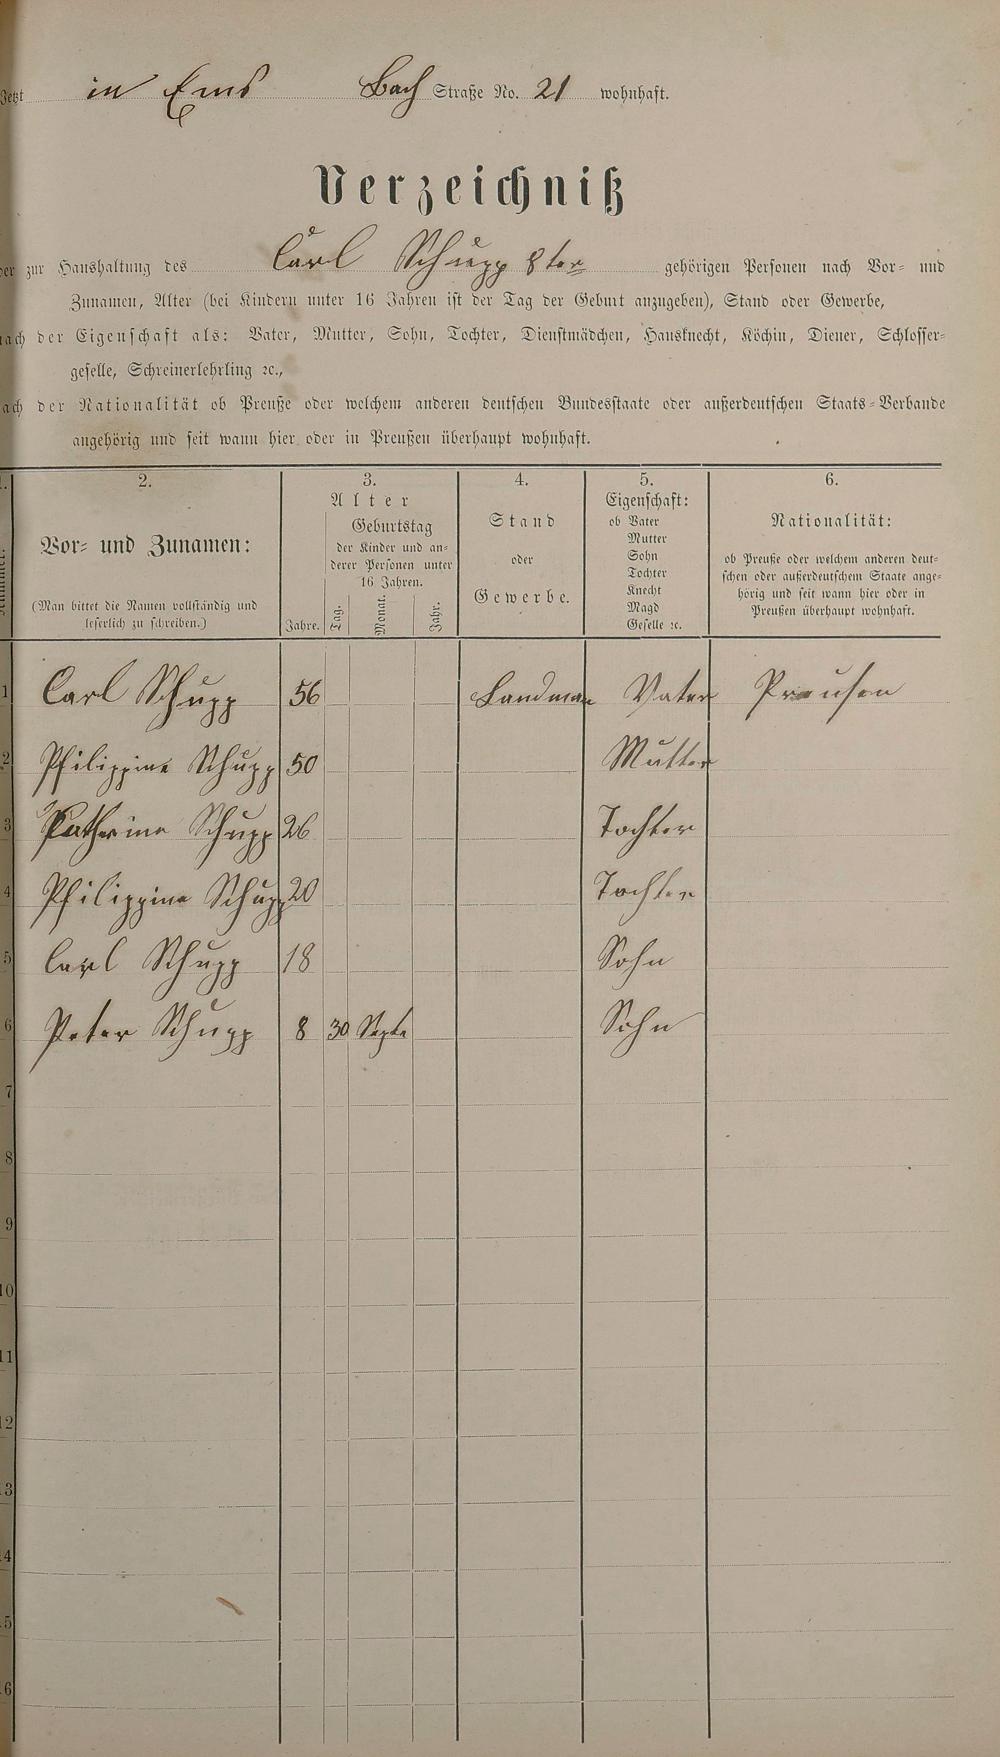 Jetzt in Ems Bach Straße No. 21 wohnhaft.
Verzeichniß
der zur Haushaltung des Carl Schupp 8ter gehörigen Personen nach Vor- und
Zunamen, Alter (bei Kindern unter 16 Jahren ist der Tag der Geburt anzugeben), Stand oder Gewerbe,
nach der Eigenschaft als: Vater, Mutter, Sohn, Tochter, Dienstmädchen, Hausknecht, Köchin, Diener, Schlosser-
geselle, Schreinerlehrling ꝛc.,
nach der Nationalität ob Preuße oder welchem anderen deutschen Bundesstaate oder außerdeutschen Staats-Verbande
angehörig und seit wann hier oder in Preußen überhaupt wohnhaft.
1.
Nummer.
2.
Vor- und Zunamen:
(Man bittet die Namen vollständig und
leserlich zu schreiben.)
3.
Alter
Jahre.
Geburtstag
der Kinder und an-
derer Personen unter
16 Jahren.
Tag.
Monat.
Jahr.
4.
Stand
oder
Gewerbe.
5.
Eigenschaft:
ob Vater
Mutter
Sohn
Tochter
Knecht
Magd
Geselle ꝛc.
6.
Nationalität:
ob Preuße oder welchem anderen deut-
schen oder außerdeutschem Staate ange-
hörig und seit wann hier oder in
Preußen überhaupt wohnhaft.
1 Carl Schupp 56 Landman Vater Preusen
2 Philippine Schupp 50 Mutter
3 Katherine Schupp 26 Tochter
4 Philippine Schupp 20 Tochter
5 Carl Schupp 18 Sohn
6 Peter Schupp 8 30 Septe Sohn
7
8
9
10
11
12
13
14
15
16